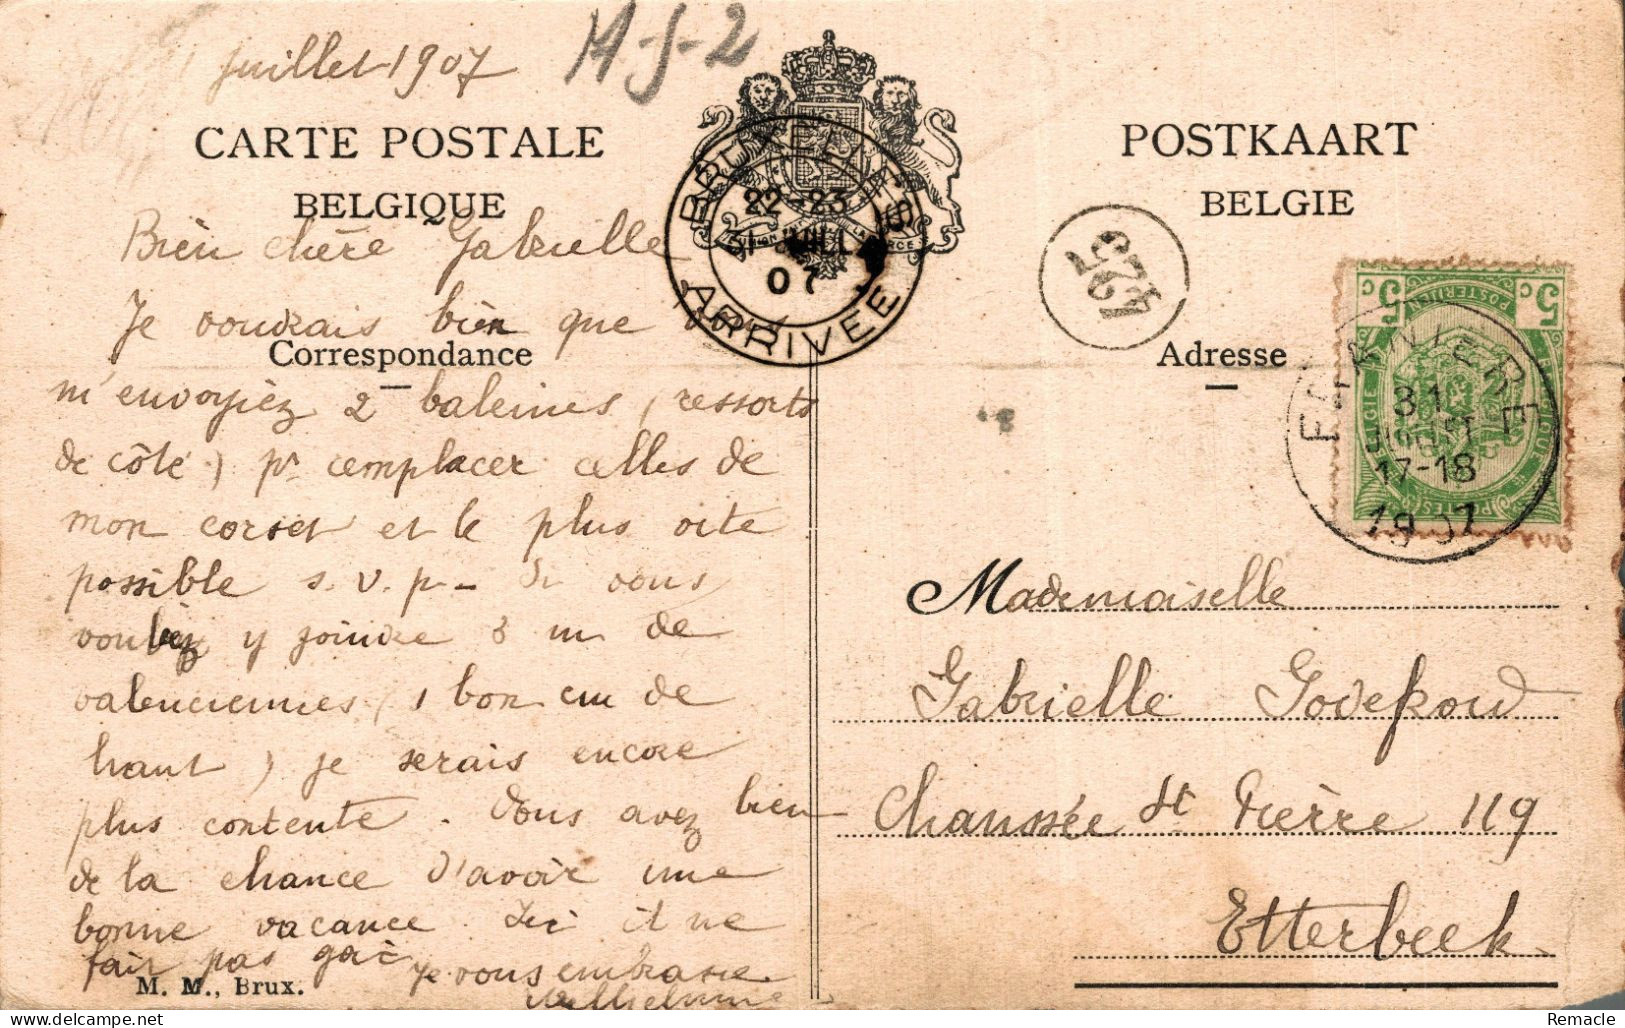 juillet 1907
M-J-2
CARTE POSTALE
BELGIQUE
POSTKAART
BELGIE
BRUXELLES
22-23
31 JUIL
07
ARRIVEE
Bien chère Gabrielle
Je voudrais bien que vous
Correspondance
m'envoyiez 2 baleines (ressorts
de côté) pr remplacer celles de
mon corset et le plus vite
possible s.v.p - Si vous
vouliez y joindre 3 m de
valenciennes (1 bon cm de
haut) je serais encore
plus contente. Vous avez bien
de la chance d'avoir une
bonne vacance Ici il ne
fait pas gai
Je vous embrasse
Wilhelmine
M. M., Brux.
Adresse
5 c 5 c
POSTERIJEN
BELGIE BELGIQUE
POSTES
31
17-18
1907
Mademoiselle
Gabrielle Godefroid
Chaussée St Pierre 119
Etterbeek
Remacle